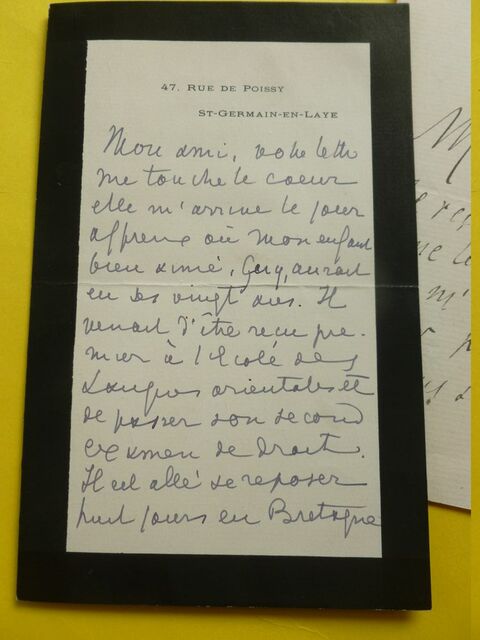 47, RUE DE POISSY
ST-GERMAIN-EN-LAYE
Mon ami, votre lettre
me touche le coeur
elle m'arrive le jour
affreux où mon enfant
bien aimé, Guy, aurait
eu ses vingt ans. Il
venait d'être reçu pre-
mier à l'école des
Langues orientales et
de passer son second
examen de droit.
Il est allé se reposer
huit jours en Bretagne